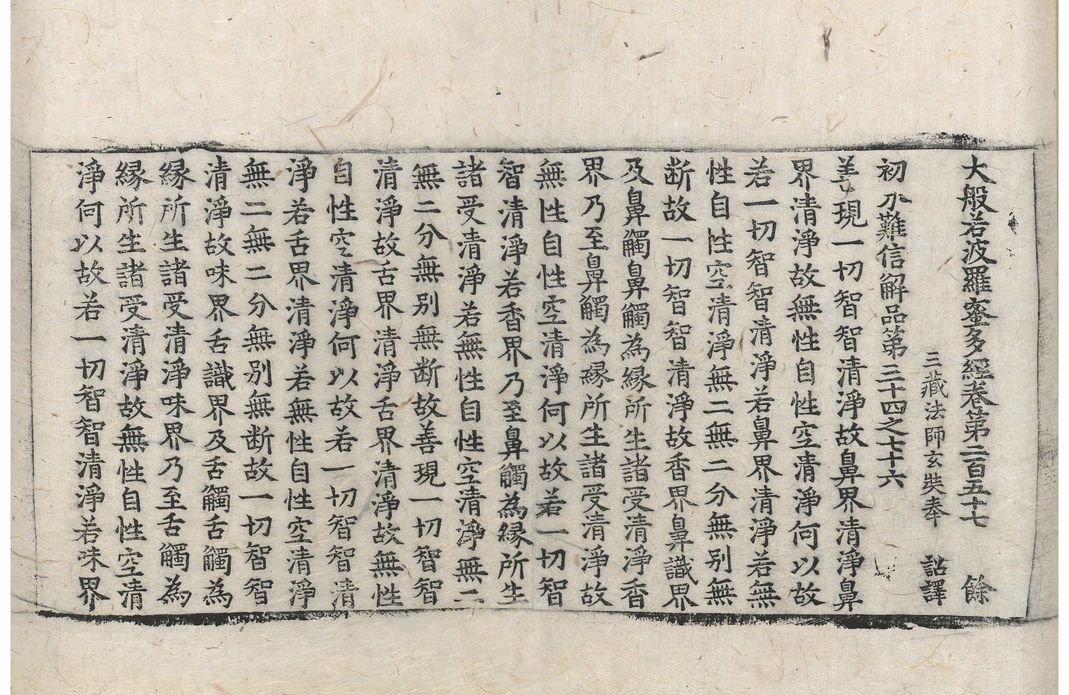 大般若波羅蜜多經卷第二百五十七 餘
三藏法師玄奘奉 詔譯
初分難信解品第三十四之七十六
善現一切智智清淨故鼻界清淨鼻
界清淨故無性自性空清淨何以故
若一切智智清淨若鼻界清淨若無
性自性空清淨無二無二分無別無
断故一切智智清淨故香界鼻識界
及鼻觸鼻觸為緣所生諸受清淨香
界乃至鼻觸為緣所生諸受清淨故
無性自性空清淨何以故若一切智
智清淨若香界乃至鼻觸為緣所生
諸受清淨若無性自性空清淨無二
無二分無別無断故善現一切智智
清淨故舌界清淨舌界清淨故無性
自性空清淨何以故若一切智智清
淨若舌界清淨若無性自性空清淨
無二無二分無別無断故一切智智
清淨故味界舌識界及舌觸舌觸為
緣所生諸受清淨味界乃至舌觸為
緣所生諸受清淨故無性自性空清
淨何以故若一切智智清淨若味界